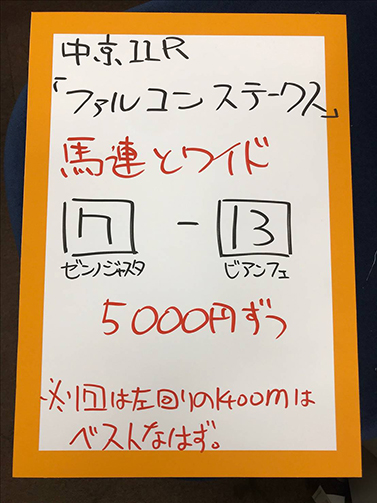 中京11R
「ファルコンステークス」
馬連とワイド
17 - 13
ゼンノジャスタ ビアンフェ
5000円ずつ
※17は左回りの1400mは
ベストなはず。